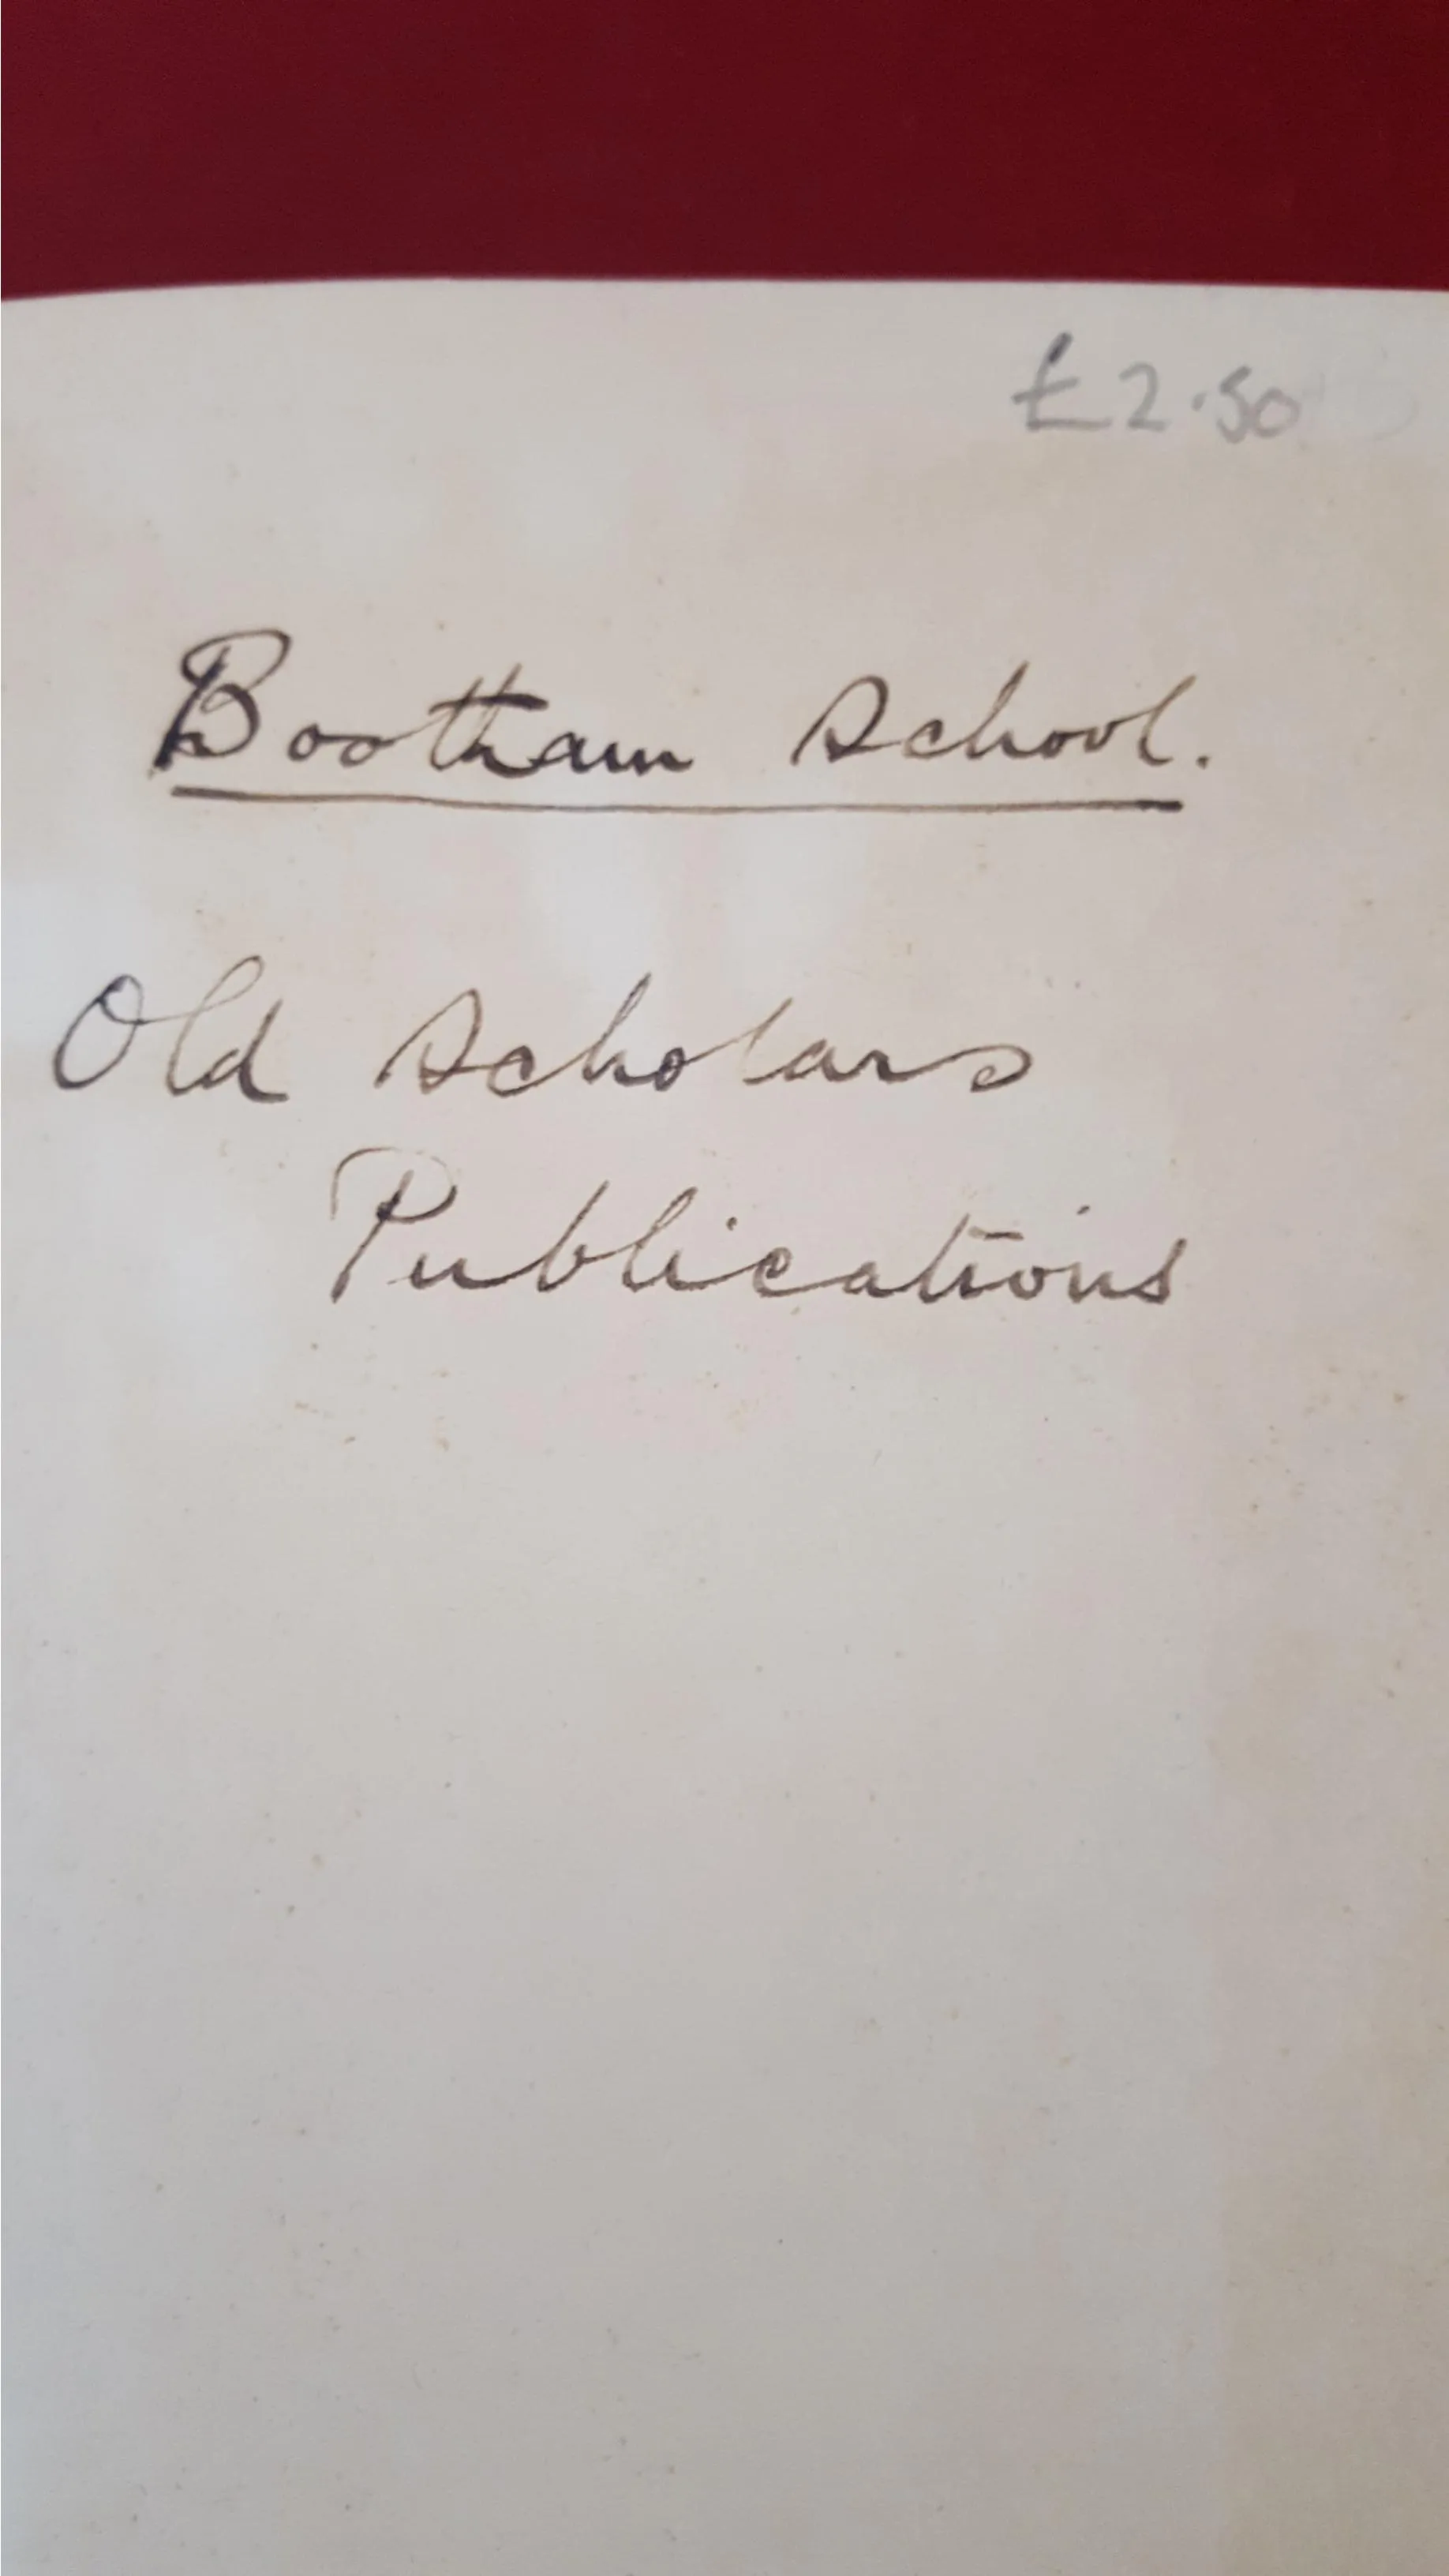 £2.50
Bootham School.
Old Scholars
Publications